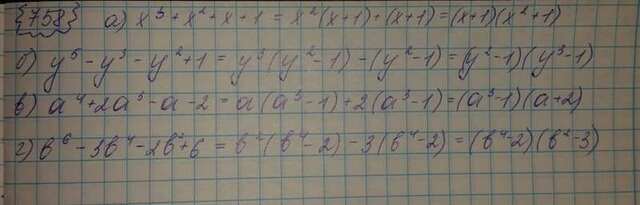 {758} а) x³ + x² + x + 1 = x²(x+1) + (x+1) = (x+1)(x²+1)
б) y⁵ - y³ - y² + 1 = y³(y²-1) - (y²-1) = (y²-1)(y³-1)
в) a⁴ + 2a³ - a - 2 = a(a³-1) + 2(a³-1) = (a³-1)(a+2)
г) b⁶ - 3b⁴ - 2b² + 6 = b²(b⁴-2) - 3(b⁴-2) = (b⁴-2)(b²-3)